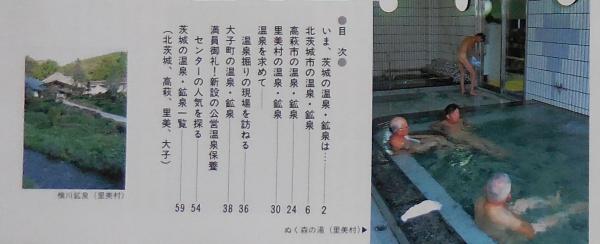 ●目次●
いま、茨城の温泉・鉱泉は…… 2
北茨城市の温泉・鉱泉 6
高萩市の温泉・鉱泉 24
里美村の温泉・鉱泉 30
温泉を求めて
温泉掘りの現場を訪ねる 36
大子町の温泉・鉱泉 38
満員御礼!新設の公営温泉保養
センターの人気を探る 54
茨城の温泉・鉱泉一覧 59
(北茨城、高萩、里美、大子)
横川鉱泉(里美村)
ぬく森の湯(里美村)▶